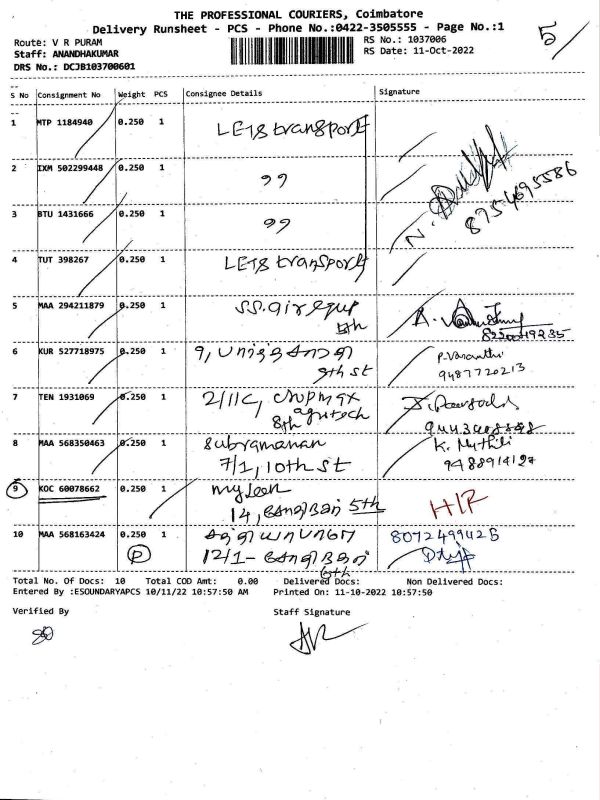 THE PROFESSIONAL COURIERS, Coimbatore
Delivery Runsheet - PCS - Phone No.:0422-3505555 - Page No.:1
5/
Route: V R PURAM
RS No.: 1037006
Staff: ANANDHAKUMAR
RS Date: 11-Oct-2022
DRS No.: DCJB103700601
S No Consignment No Weight PCS Consignee Details Signature
1 MTP 1184940 0.250 1 LETS transport
2 IXM 502299448 0.250 1 99
8754695586
3 BTU 1431666 0.250 1 99
4 TUT 398267 0.250 1 LETS transport
5 MAA 294211879 0.250 1 SS.air equp
6 KUR 527718975 0.250 1 9, P.Vasanthi
9th st 9487720213
7 TEN 1931069 0.250 1 2/11C,
8th agritech
8 MAA 568350463 0.250 1 Subramanan K. Mythili
7/1, 10th st 9488914127
9 KOC 60078662 0.250 1
14, 5th
10 MAA 568163424 0.250 1 8072499425
P 12/1-
6th
Total No. Of Docs: 10 Total COD Amt: 0.00 Delivered Docs: Non Delivered Docs:
Entered By :ESOUNDARYAPCS 10/11/22 10:57:50 AM Printed On: 11-10-2022 10:57:50
Verified By Staff Signature